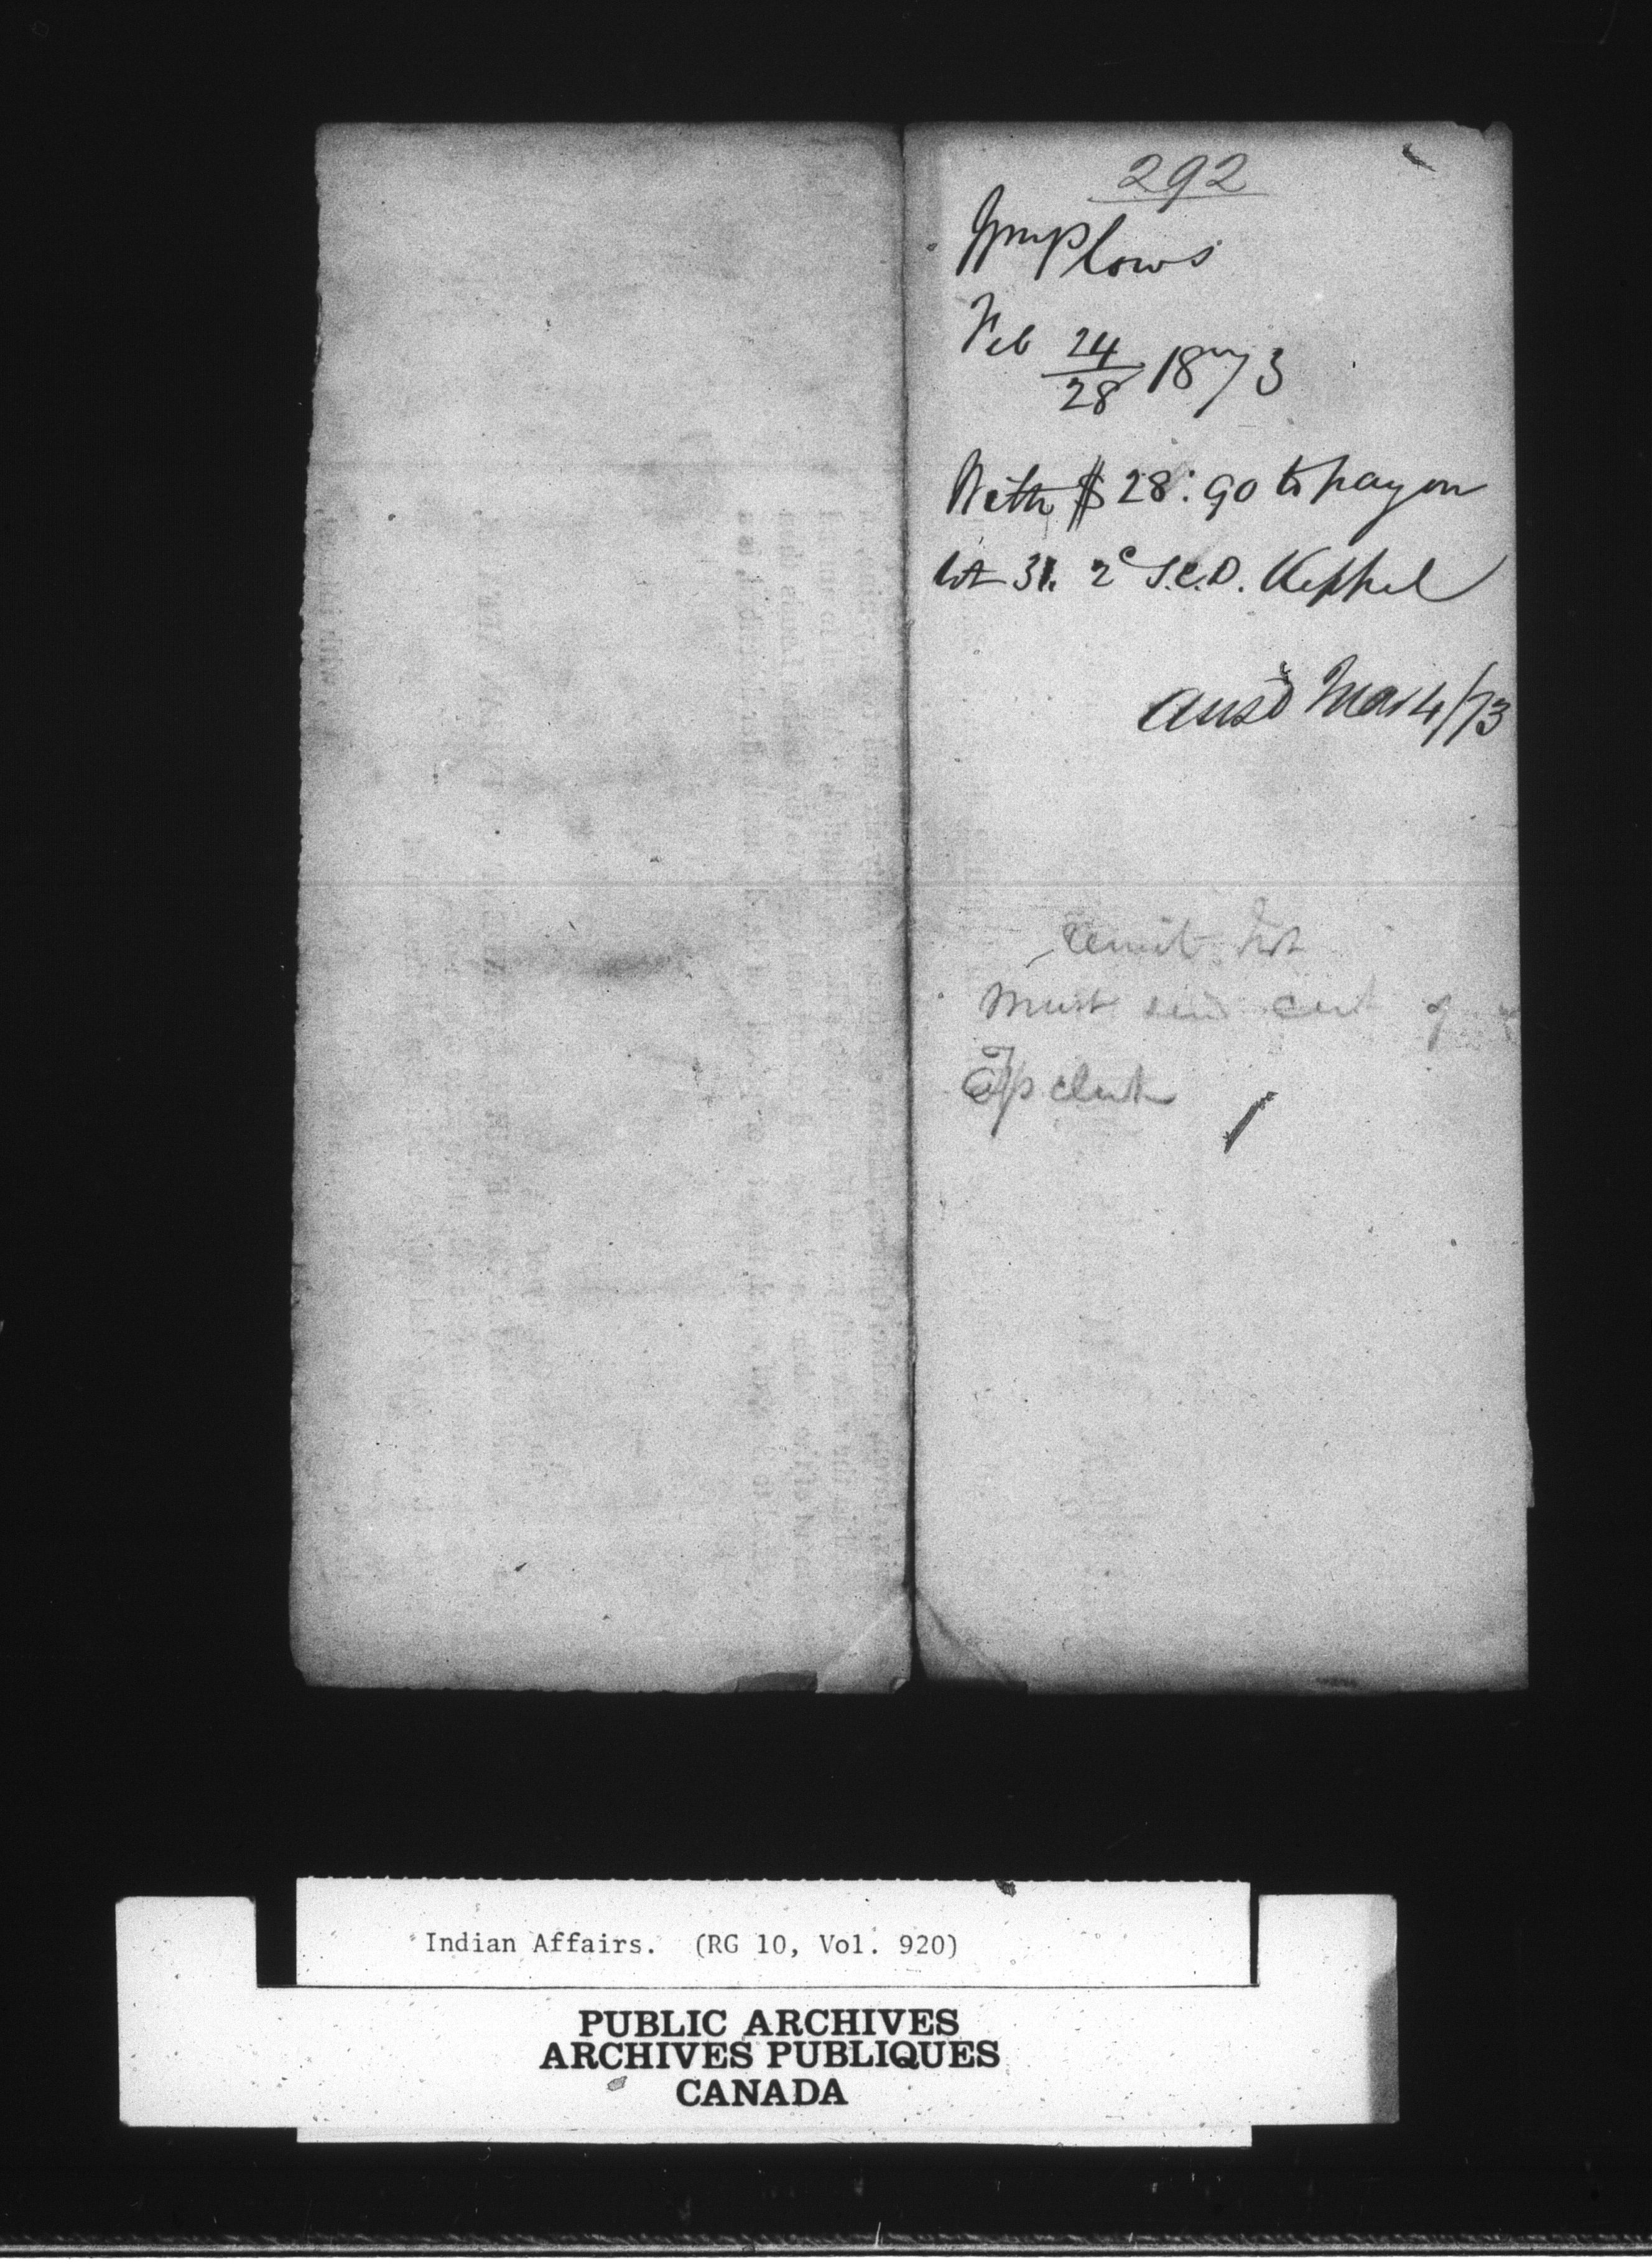 292
Plows
Feb 24/28 1873
With $28.90 to pay on
lot 31. 2c S.C.D. Keppel
Ansd Mar 4/73
Must send cert of
Tp clerk
Indian Affairs. (RG 10, Vol. 920)
PUBLIC ARCHIVES
ARCHIVES PUBLIQUES
CANADA